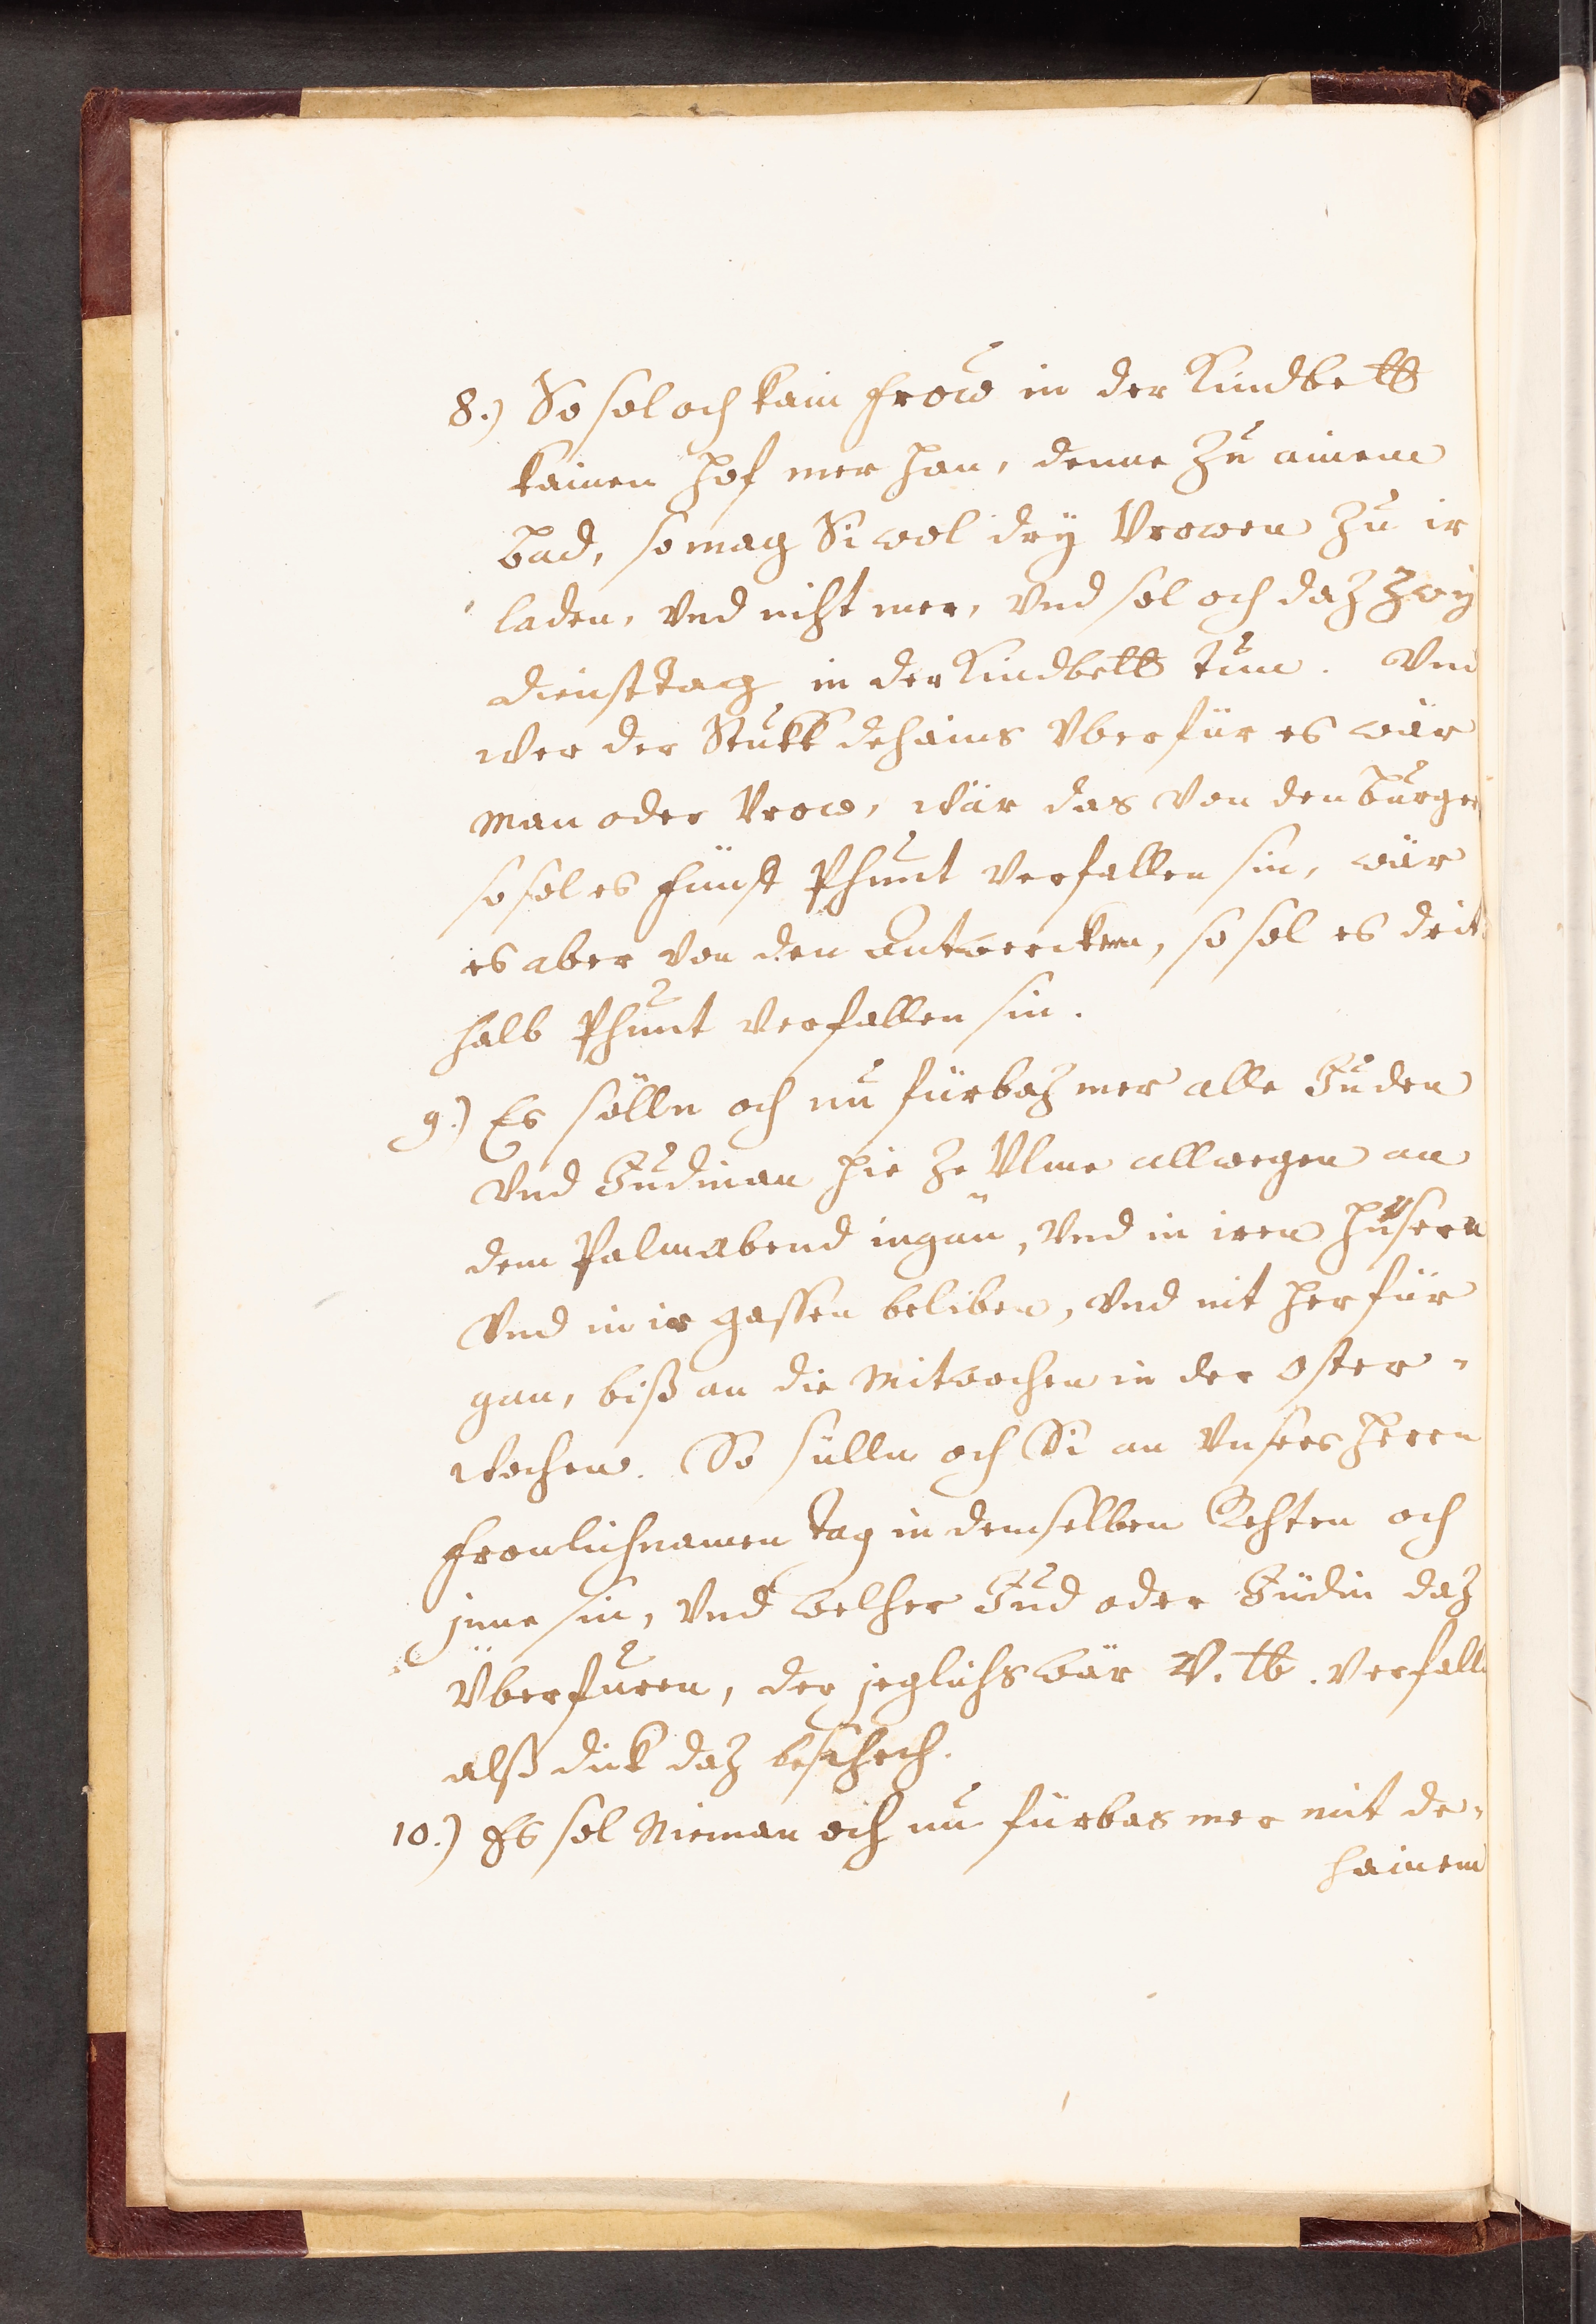 8.) So sol och kain Frow in der Kindbett
kainen Hof mer han, denne Zu ainem
bad, so mag Si wol drÿ Vrowen Zu ir
laden, vnd niht mer, vnd sol och daz Zwÿ
Diensttag in der Kindbett tun. Vnd
wer der Stukk dehains Vberfür es wär
Man oder Vrow, wär das von den burgern
so sol es Fünft Phunt verfallen sin, wär
es aber von den Antwercken, so sol es drit
halb Phunt verfallen sin.
9.) Es sölln och nu fürbaz mer alle Juden
vnd Judinan hie Ze Vlme allwegen an
dem Palmabend ingän, vnd in iren Husern
Vnd in ir gassen beliben, vnd nit herfür
gan, biß an die Mitwochen in der Oster-
wochen. So sülln och Si an Vnsers Herrn
Fronlichnamen Tag in demselben Rehten och
jnne sin, vnd welher Jud oder Jüdin daz
Vberfuren, der jeglichs wär V. lb. verfalln
alß dick daz beschech.
10.) Es sol Nieman och nu fürbas mer mit de-
hainem